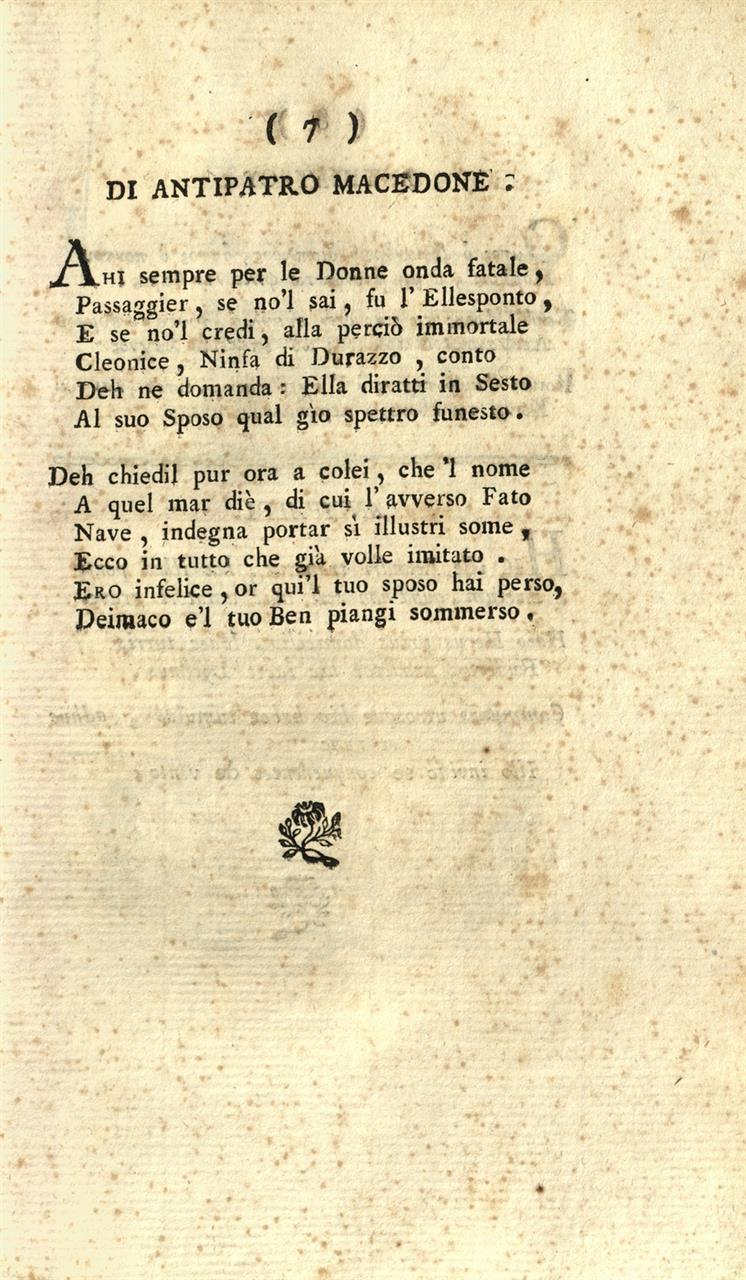 ( 7 )
DI ANTIPATRO MACEDONE :
AHI sempre per le Donne onda fatale,
Passaggier, se no'l sai, fu l'Ellesponto,
E se no'l credi, alla perciò immortale
Cleonice, Ninfa di Durazzo, conto
Deh ne domanda: Ella diratti in Sesto
Al suo Sposo qual gìo spettro funesto.
Deh chiedil pur ora a colei, che 'l nome
A quel mar diè, di cui l'avverso Fato
Nave, indegna portar sì illustri some,
Ecco in tutto che già volle imitato.
ERO infelice, or qui'l tuo sposo hai perso,
Deimaco e'l tuo Ben piangi sommerso.